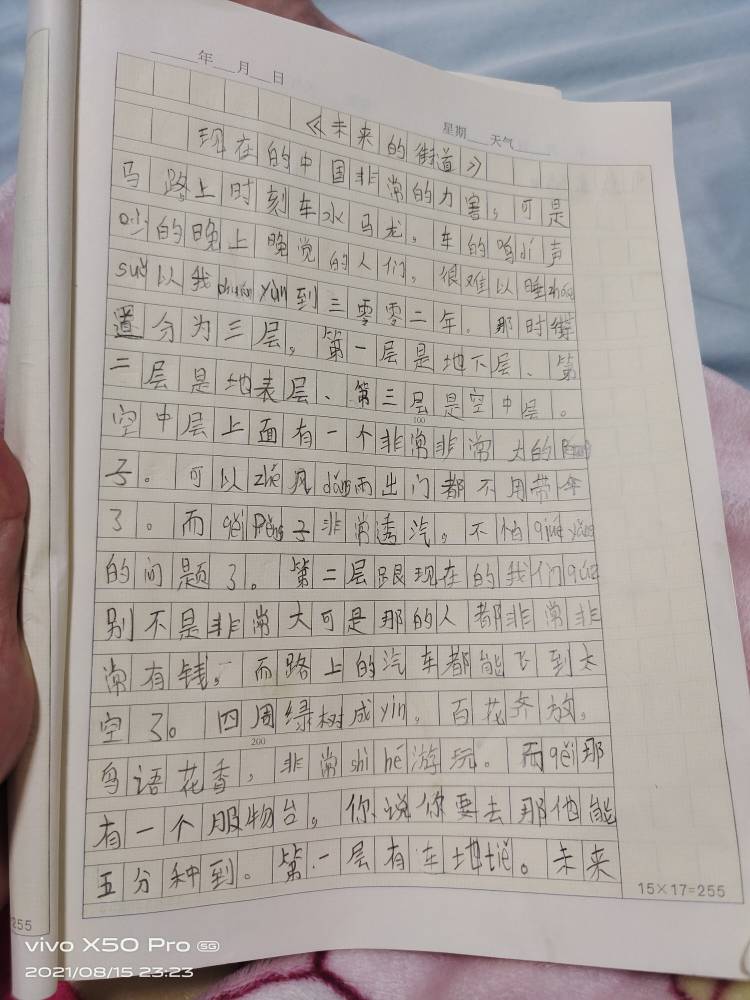 年 月 日
星期 天气
《未来的街道》
现在的中国非常的力害，可是
马路上时刻车水马龙，车的鸣dí声
吵的晚上晚觉的人们，很难以睡zháo
suǒ以我chuān yuè到三零零二年。那时街
道分为三层，第一层是地下层、第
二层是地表层、第三层是空中层。
100
空中层上面有一个非常非常大的
子。可以zhē风dǎng雨出门都不用带伞
了。而qiěi Péng子非常透汽，不怕quē yǎng
的问题了。第二层跟现在的我们qūe
别不是非常大可是那的人都非常非
常有钱，而路上的汽车都能飞到太
空了。四周绿树成yīn，百花齐放，
200
鸟语花香，非常shì hé游玩。而qiěi那
有一个服物台，你说你要去那他能
五分种到。第一层有车地tiě。未来
15×17=255
255
vivo X50 Pro 5G
2021/08/15 23:23